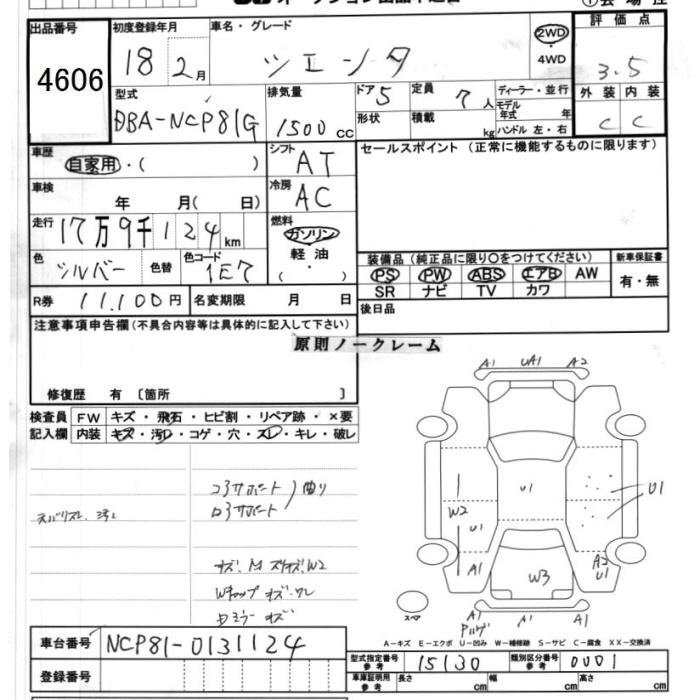 出品番号
4606
初度登録年月
18 2月
車名・グレード
シエンタ
2WD
・
4WD
評価点
3.5
型式
DBA-NCP81G
排気量
1500 cc
ドア
5
形状
定員
7人
積載
kg
ディーラー・並行
モデル年式 年
ハンドル 左・右
外装 内装
C C
車歴
自家用・( )
シフト
AT
セールスポイント (正常に機能するものに限ります)
車検
年 月( 日)
冷房
AC
走行
17万9千124km
燃料
ガソリン
軽油
( ・ )
色
シルバー
色替
色コード
1E7
装備品 (純正品に限り○をつけてください)
新車保証書
PS PW ABS エアB AW
有・無
SR ナビ TV カワ
R券 11,100円
名変期限 月 日
後日品
注意事項申告欄(不具合内容等は具体的に記入して下さい)
原則ノークレーム
修復歴 有 〔箇所 〕
検査員記入欄
FW キズ・飛石・ヒビ割・リペア跡・×要
内装 キズ・汚れ・コゲ・穴・スレ・キレ・破レ
コアサポート
曲り
ロアサポート
A1 UA1 A2
U1
U1
W2
U1
A1
A2
U1
W3
スペア
A1 A1 A1
A-キズ E-エクボ U-凹み W-補修跡 S-サビ C-腐食 XX-交換済
車台番号
NCP81-0131124
型式指定番号
参考
15130
類別区分番号
参考
0001
登録番号
車庫証明用
参考
長さ cm 幅 cm 高さ cm